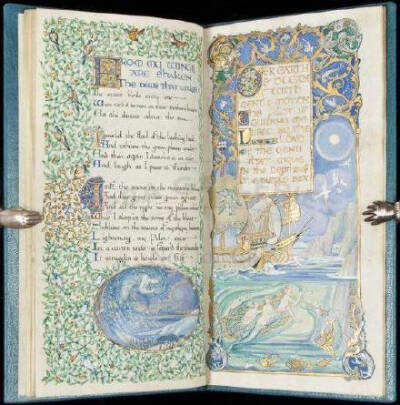 FROM MY WINGS
ARE SHAKEN
The Dews that waken
The sweet buds every one
When rock'd to rest on their mother's breast
As she dances about the sun.
I wield the flail of the lashing hail
And whiten the green plains under
And then again I dissolve it in rain
And laugh as I pass in thunder
I sift the snow on the mountains below
And their great pines groan aghast
And all the night 'tis my pillow white
While I sleep in the arms of the blast
Sublime on the towers of my skiey bowers
Lightning my Pilot sits
In a cavern under is fettered the thunder
It struggles & howls at fits
OVER EARTH
& OCEAN
WITH
GENTLE MOTION
GUIDING ME
LURED BY THE
LOVE
OF THE GENII
THAT MOVE
IN THE DEPTHS OF
THE PURPLE SEA